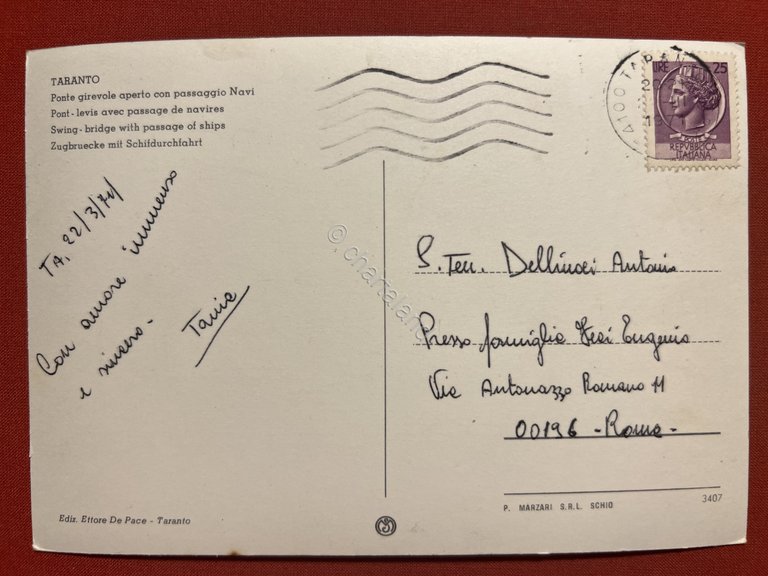 TARANTO
Ponte girevole aperto con passaggio Navi
Pont-levis avec passage de navires
Swing-bridge with passage of ships
Zugbruecke mit Schifdurchfahrt
TA, 22/3/74
Con amore immenso
e sincero-
Tania
Ediz. Ettore De Pace - Taranto
LIRE 25
POSTE
REPVBBLICA
ITALIANA
74100 TARAN
S. Ten. Antonio
Presso famiglia Eugenio
Via Antonazzo Romano 11
00196 - Roma -
P. MARZARI S.R.L. SCHIO
3407
© chartaland